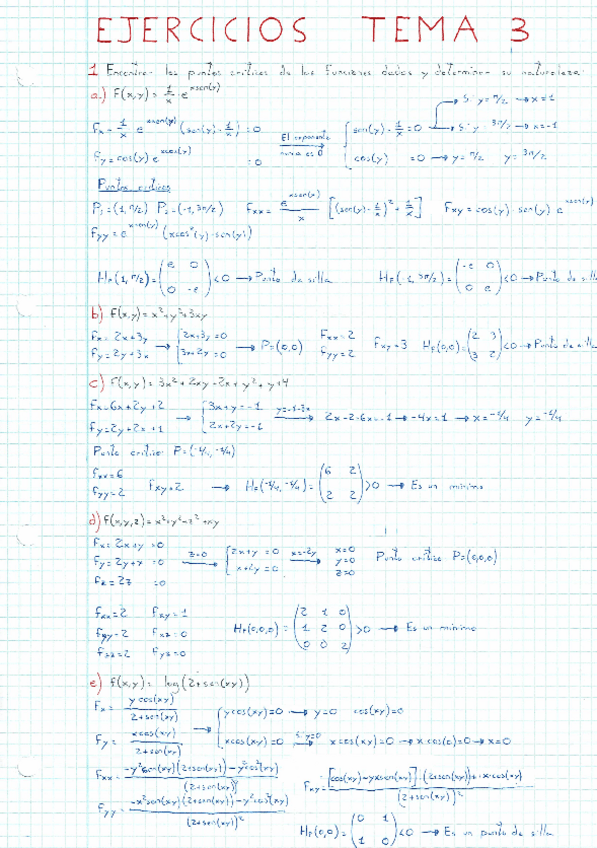 EJERCICIOS TEMA 3
1 Encontrar los puntos críticos de las funciones dadas y determinar su naturaleza:
a) F(x,y) = 1/x · e^(xsen(y))
Fx = 1/x e^(xsen(y)) (sen(y) - 1/x) = 0
Fy = cos(y) e^(xsen(y)) = 0
El exponente nunca es 0
sen(y) - 1/x = 0
Si y = π/2 → x = 1
Si y = 3π/2 → x = -1
cos(y) = 0 → y = π/2 y = 3π/2
Puntos críticos
P₁ = (1, π/2) P₂ = (-1, 3π/2) Fxx = e^(xsen(y))/x [(sen(y) - 1/x)² + 1/x²] Fxy = cos(y) · sen(y) e^(xsen(y))
Fyy = e^(xsen(y)) (xcos²(y) - sen(y))
HF(1, π/2) = (e 0 / 0 -e) < 0 → Punto de silla HF(-1, 3π/2) = (-e 0 / 0 e) < 0 → Punto de silla
b) F(x,y) = x² + y² + 3xy
Fx = 2x + 3y
Fy = 2y + 3x
2x + 3y = 0
3x + 2y = 0
→ P = (0,0)
Fxx = 2
Fyy = 2
Fxy = 3 HF(0,0) = (2 3 / 3 2) < 0 → Punto de silla
c) F(x,y) = 3x² + 2xy + 2x + y² + y + 4
Fx = 6x + 2y + 2
Fy = 2y + 2x + 1
3x + y = -1
2x + 2y = -1
y = -1-3x
2x - 2 - 6x = -1 → -4x = 1 → x = -1/4 y = -1/4
Punto crítico P = (-1/4, -1/4)
Fxx = 6
Fyy = 2
Fxy = 2 → HF(-1/4, -1/4) = (6 2 / 2 2) > 0 → Es un mínimo
d) F(x,y,z) = x² + y² + z² + xy
Fx = 2x + y = 0
Fy = 2y + x = 0
Fz = 2z = 0
z=0
2x + y = 0
x + 2y = 0
x=-2y
x=0
y=0
z=0
Punto crítico P = (0,0,0)
Fxx = 2 Fxy = 1
Fyy = 2 Fxz = 0
Fzz = 2 Fyz = 0
HF(0,0,0) = (2 1 0 / 1 2 0 / 0 0 2) > 0 → Es un mínimo
e) F(x,y) = log(2 + sen(xy))
Fx = ycos(xy) / 2 + sen(xy)
Fy = xcos(xy) / 2 + sen(xy)
ycos(xy) = 0 → y = 0 cos(xy) = 0
xcos(xy) = 0 Si y=0 → xcos(xy) = 0 → x·cos(0) = 0 → x = 0
Fxx = -y²sen(xy)(2 + sen(xy)) - y²cos²(xy) / (2 + sen(xy))²
Fxy = [cos(xy) - yxsen(xy)] · (2 + sen(xy)) + · x·cos(xy) / (2 + sen(xy))²
Fyy = -x²sen(xy)(2 + sen(xy)) - y²cos²(xy) / (2 + sen(xy))²
HF(0,0) = (0 1 / 1 0) < 0 → Es un punto de silla